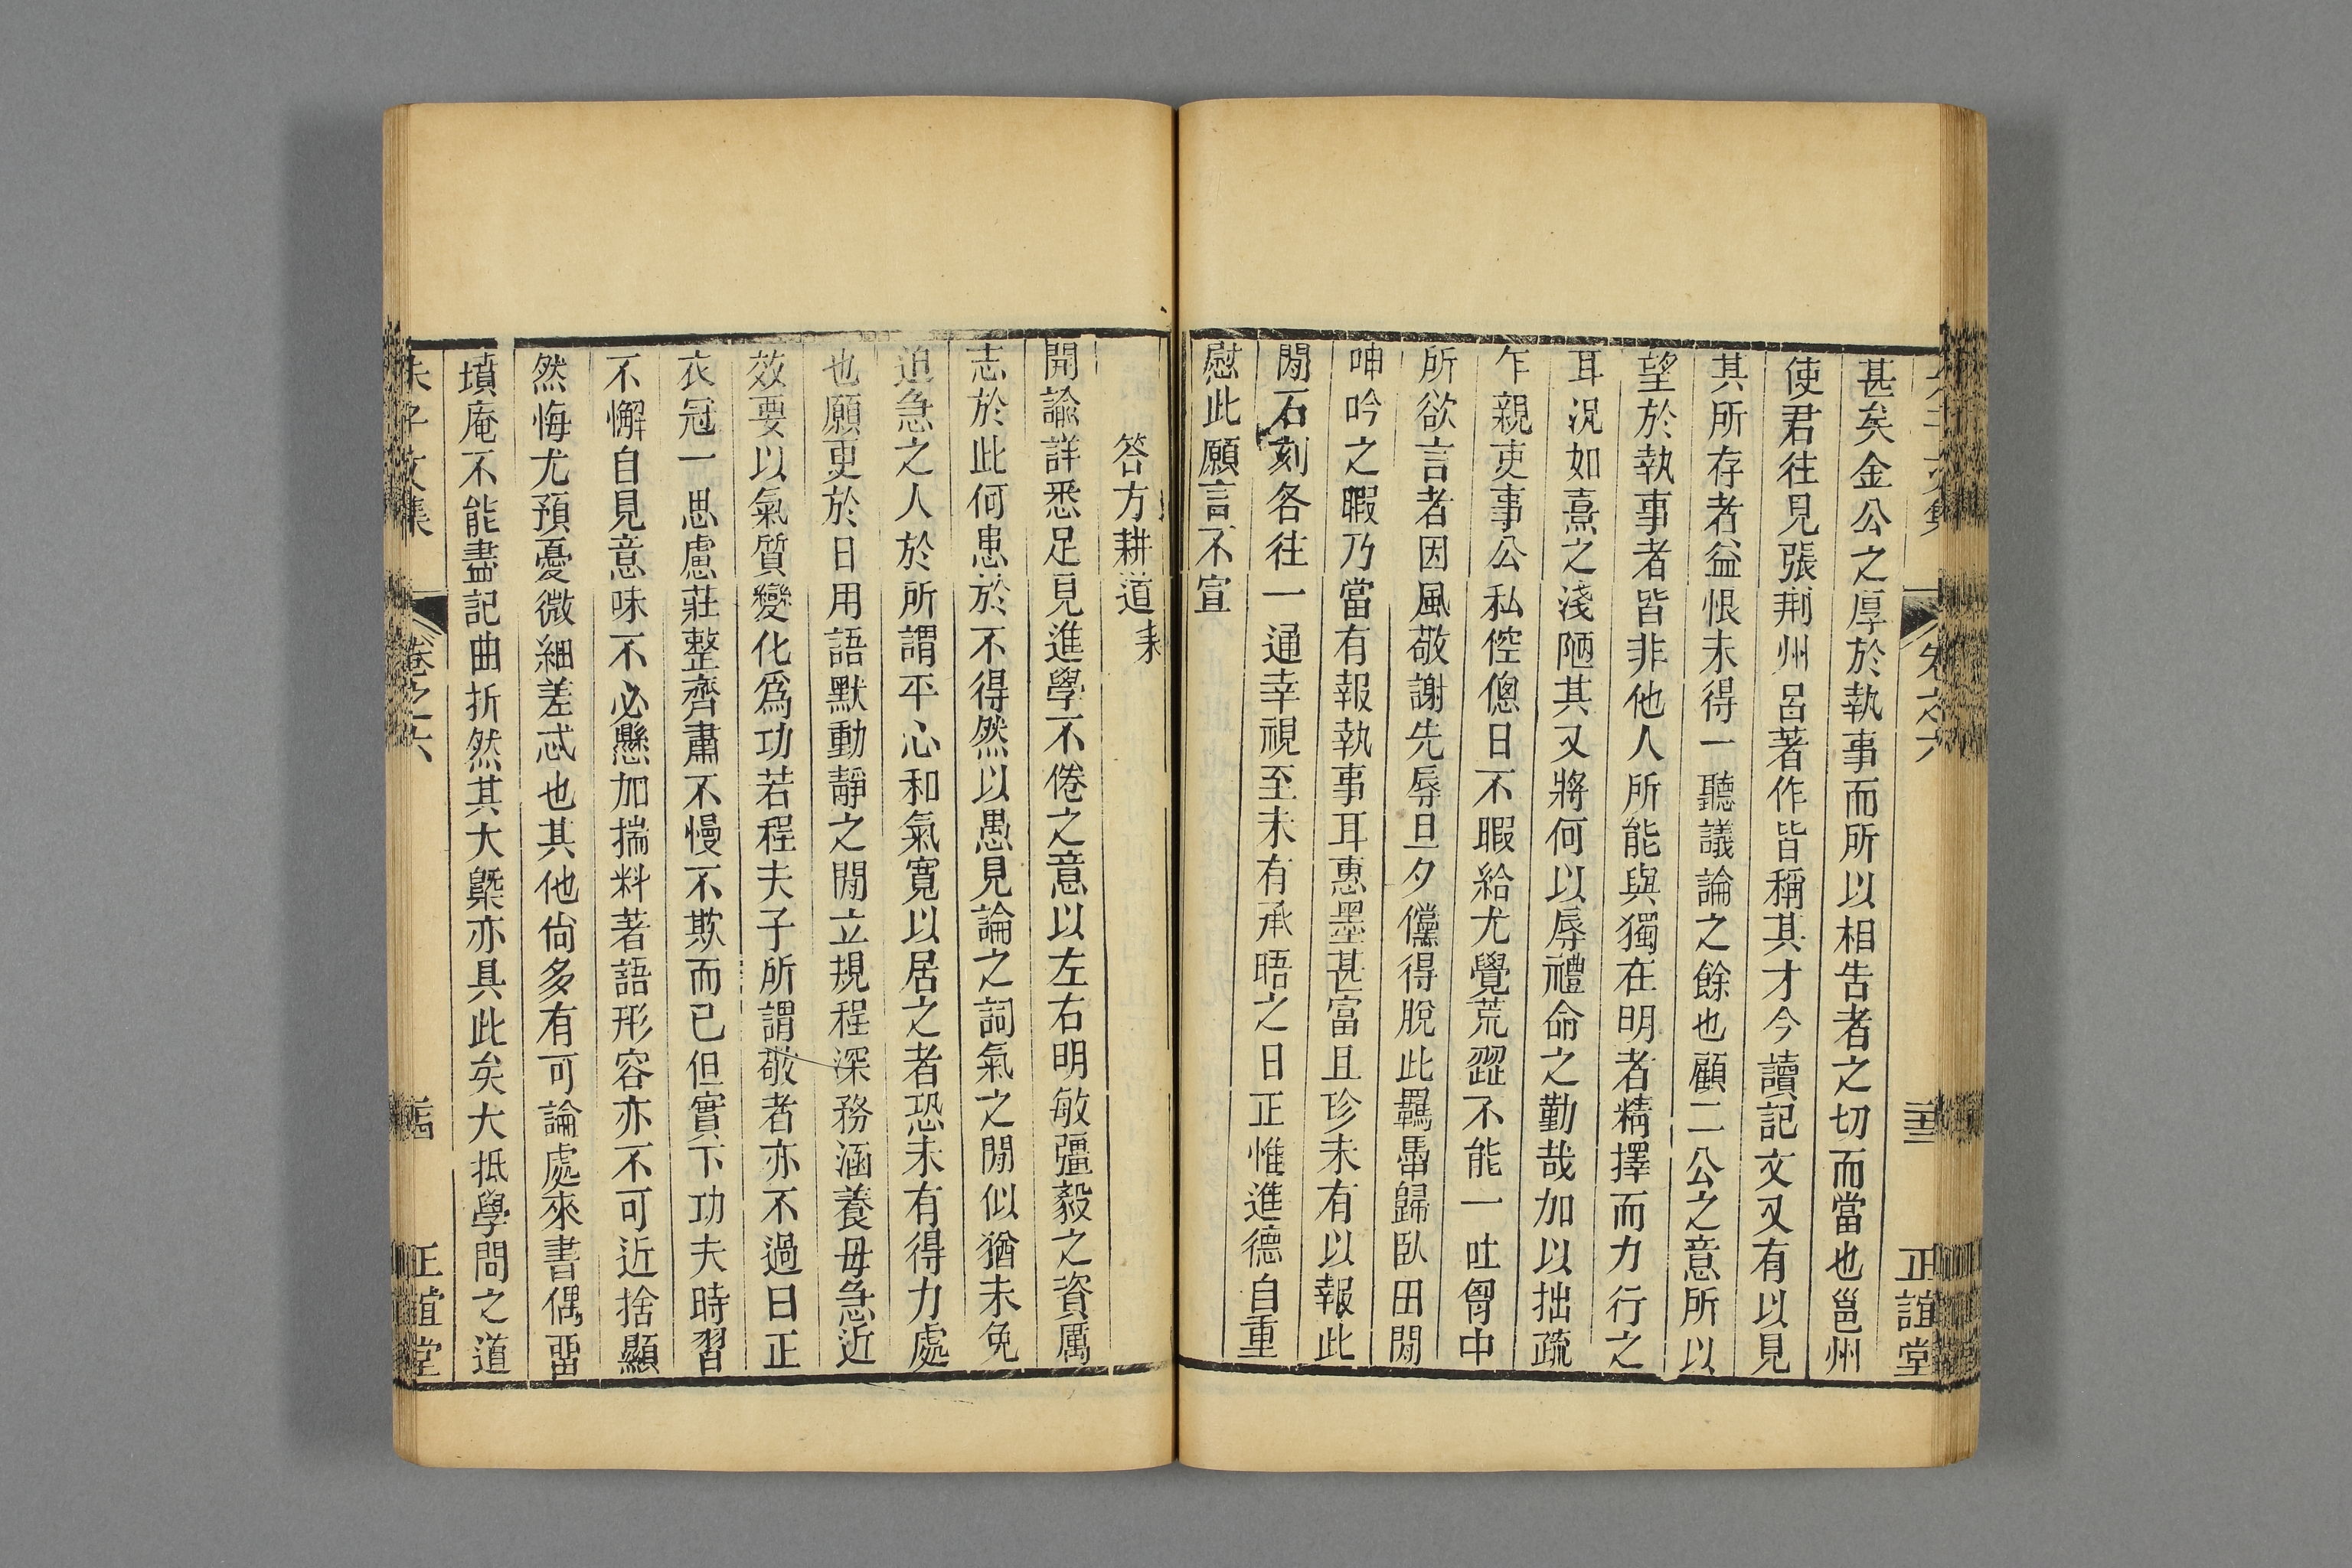 甚矣金公之厚於執事而所以相告者之切而當也邕州
使君往見張荆州呂著作皆稱其才今讀記文又有以見
其所存者益恨未得一聽議論之餘也顧二公之意所以
望於執事者皆非他人所能與獨在明者精擇而力行之
耳況如熹之淺陋其又將何以辱禮命之勤哉加以拙疏
乍親吏事公私倥傯日不暇給尤覺荒澀不能一吐胷中
所欲言者因風敬謝先辱旦夕儻得脫此羈馽歸臥田閒
呻吟之暇乃當有報執事耳惠墨甚富且珍未有以報此
閒石刻各往一通幸視至未有承晤之日正惟進德自重
慰此願言不宣
答方耕道耒
開諭詳悉足見進學不倦之意以左右明敏彊毅之資厲
志於此何患於不得然以愚見論之詞氣之閒似猶未免
迫急之人於所謂平心和氣寬以居之者恐未有得力處
也願更於日用語默動靜之閒立規程深務涵養毋急近
效要以氣質變化爲功若程夫子所謂敬者亦不過曰正
衣冠一思慮莊整齊肅不慢不欺而已但實下功夫時習
不懈自見意味不必懸加揣料著語形容亦不可近捨顯
然悔尤預憂微細差忒也其他尙多有可論處來書偶畱
墳庵不能盡記曲折然其大槩亦具此矣大抵學問之道
朱子文集
卷之六
正誼堂